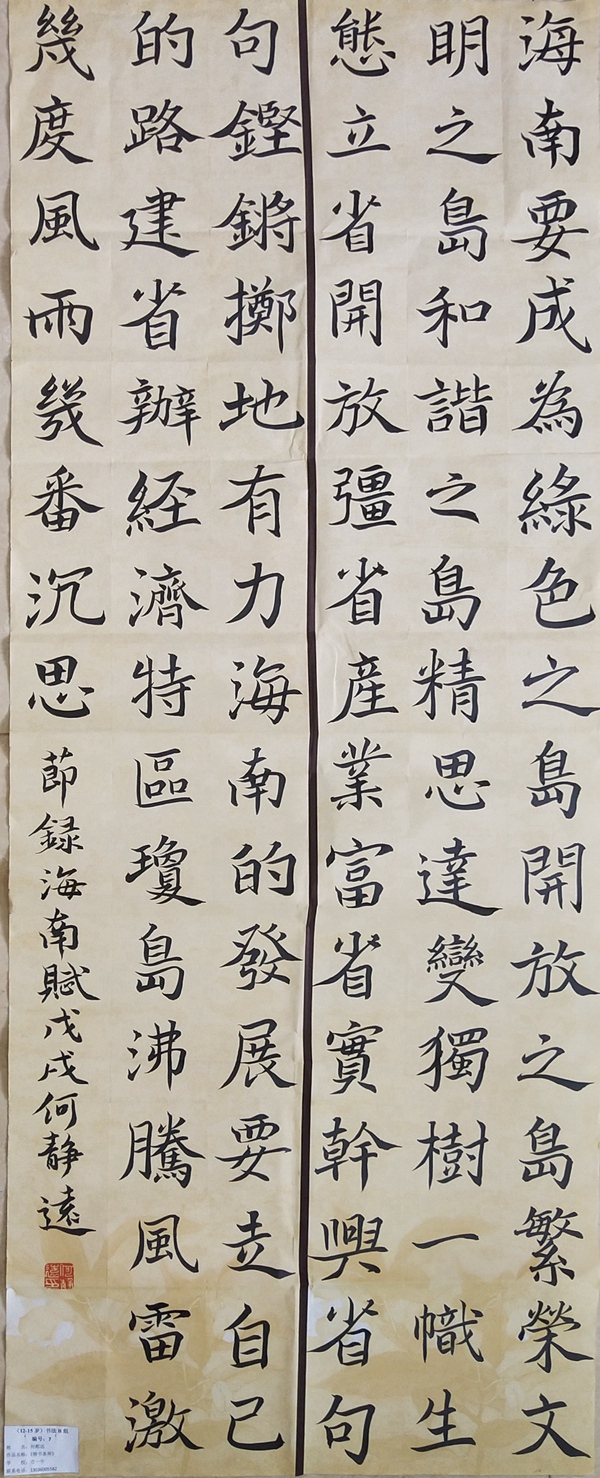 海南要成為綠色之島開放之島繁榮文
明之島和諧之島精思達變獨樹一幟生
態立省開放彊省産業富省實幹興省句
句鏗鏘擲地有力海南的發展要走自己
的路建省辦経濟特區瓊島沸騰風雷激
幾度風雨幾番沉思
節録海南賦戊戌何静遠
（12-15岁）书法B组
编号：7